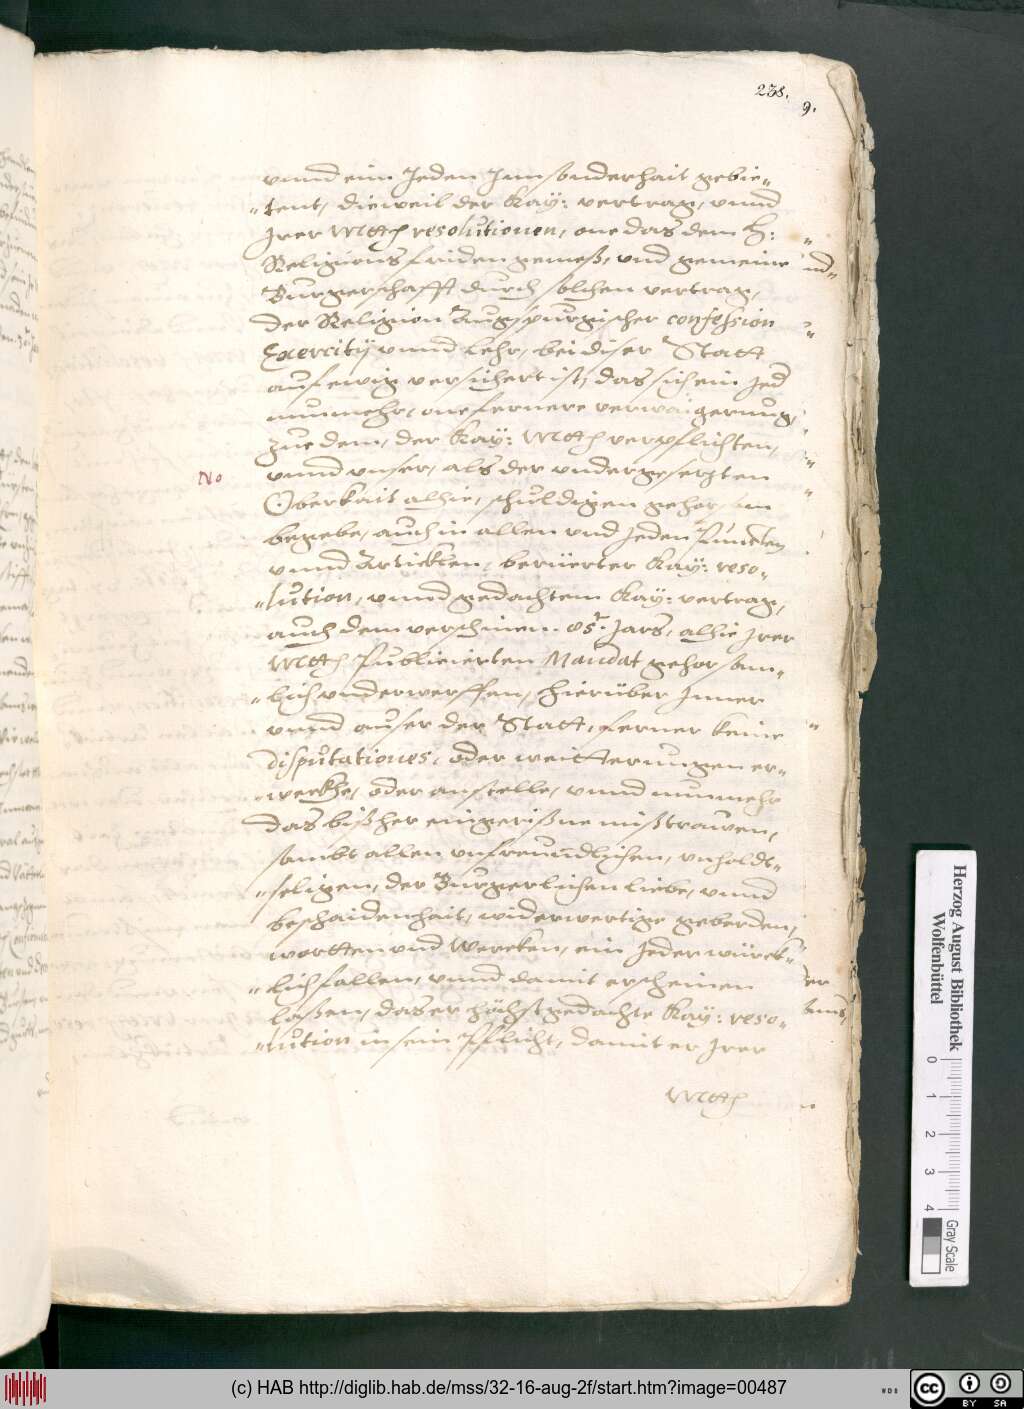 238.
9.
vnnd ein Jeden Jnn sonderhait gebie„
„tent, dieweil der Kay: vertrag, vnnd
Jrer Mtt resolutionen, one das dem h:
Religionsfriden gemeß, vnd gemeine
Burgerschafft durch solchen vertrag,
der Religion Augspurgischer confession
Exercitij vnnd Lehr, bei diser Statt
auf ewig versichert ist, das sich ein Jed
nunmehr, one fernere verwaigerung,
zue dem, der Kay: Mtt verpflichten,
No
vnnd vnser, als der vndergesetzten
Oberkait alhie, schuldigen
begebe, auch in allen vnd Jeden Puncten
vnnd Articklen, berüerter Kay: reso„
„lution, vnnd gedachtem Kay: vertrag,
auch dem verschinen 85t. Jars, alhie Jrer
Mtt Publicierten Mandat gehorsam„
„lich vnderwerffen, hierüber Jnner
vnnd auser der Statt, ferner keine
disputationes, oder weitterungen er„
„weckhe, oder anstelle, vnnd nunmehr
das bißher eingerißne mißtrawen,
sambt allen vnfreundlichen, vnholdt„
„seligen, der Burgerlichen liebe, vnnd
beschaidenhait, widerwertige geberden,
wortten vnd Wercken, ein Jeder würck„
„lich fallen, vnnd damit erscheinen
laßen, das er höchstgedachte Kay: reso„
„lution in sein Pflicht, damit er Jrer
Mtt
Herzog August Bibliothek
Wolfenbüttel
0 1 2 3 4
Gray Scale
(c) HAB http://diglib.hab.de/mss/32-16-aug-2f/start.htm?image=00487
WDB
cc BY SA